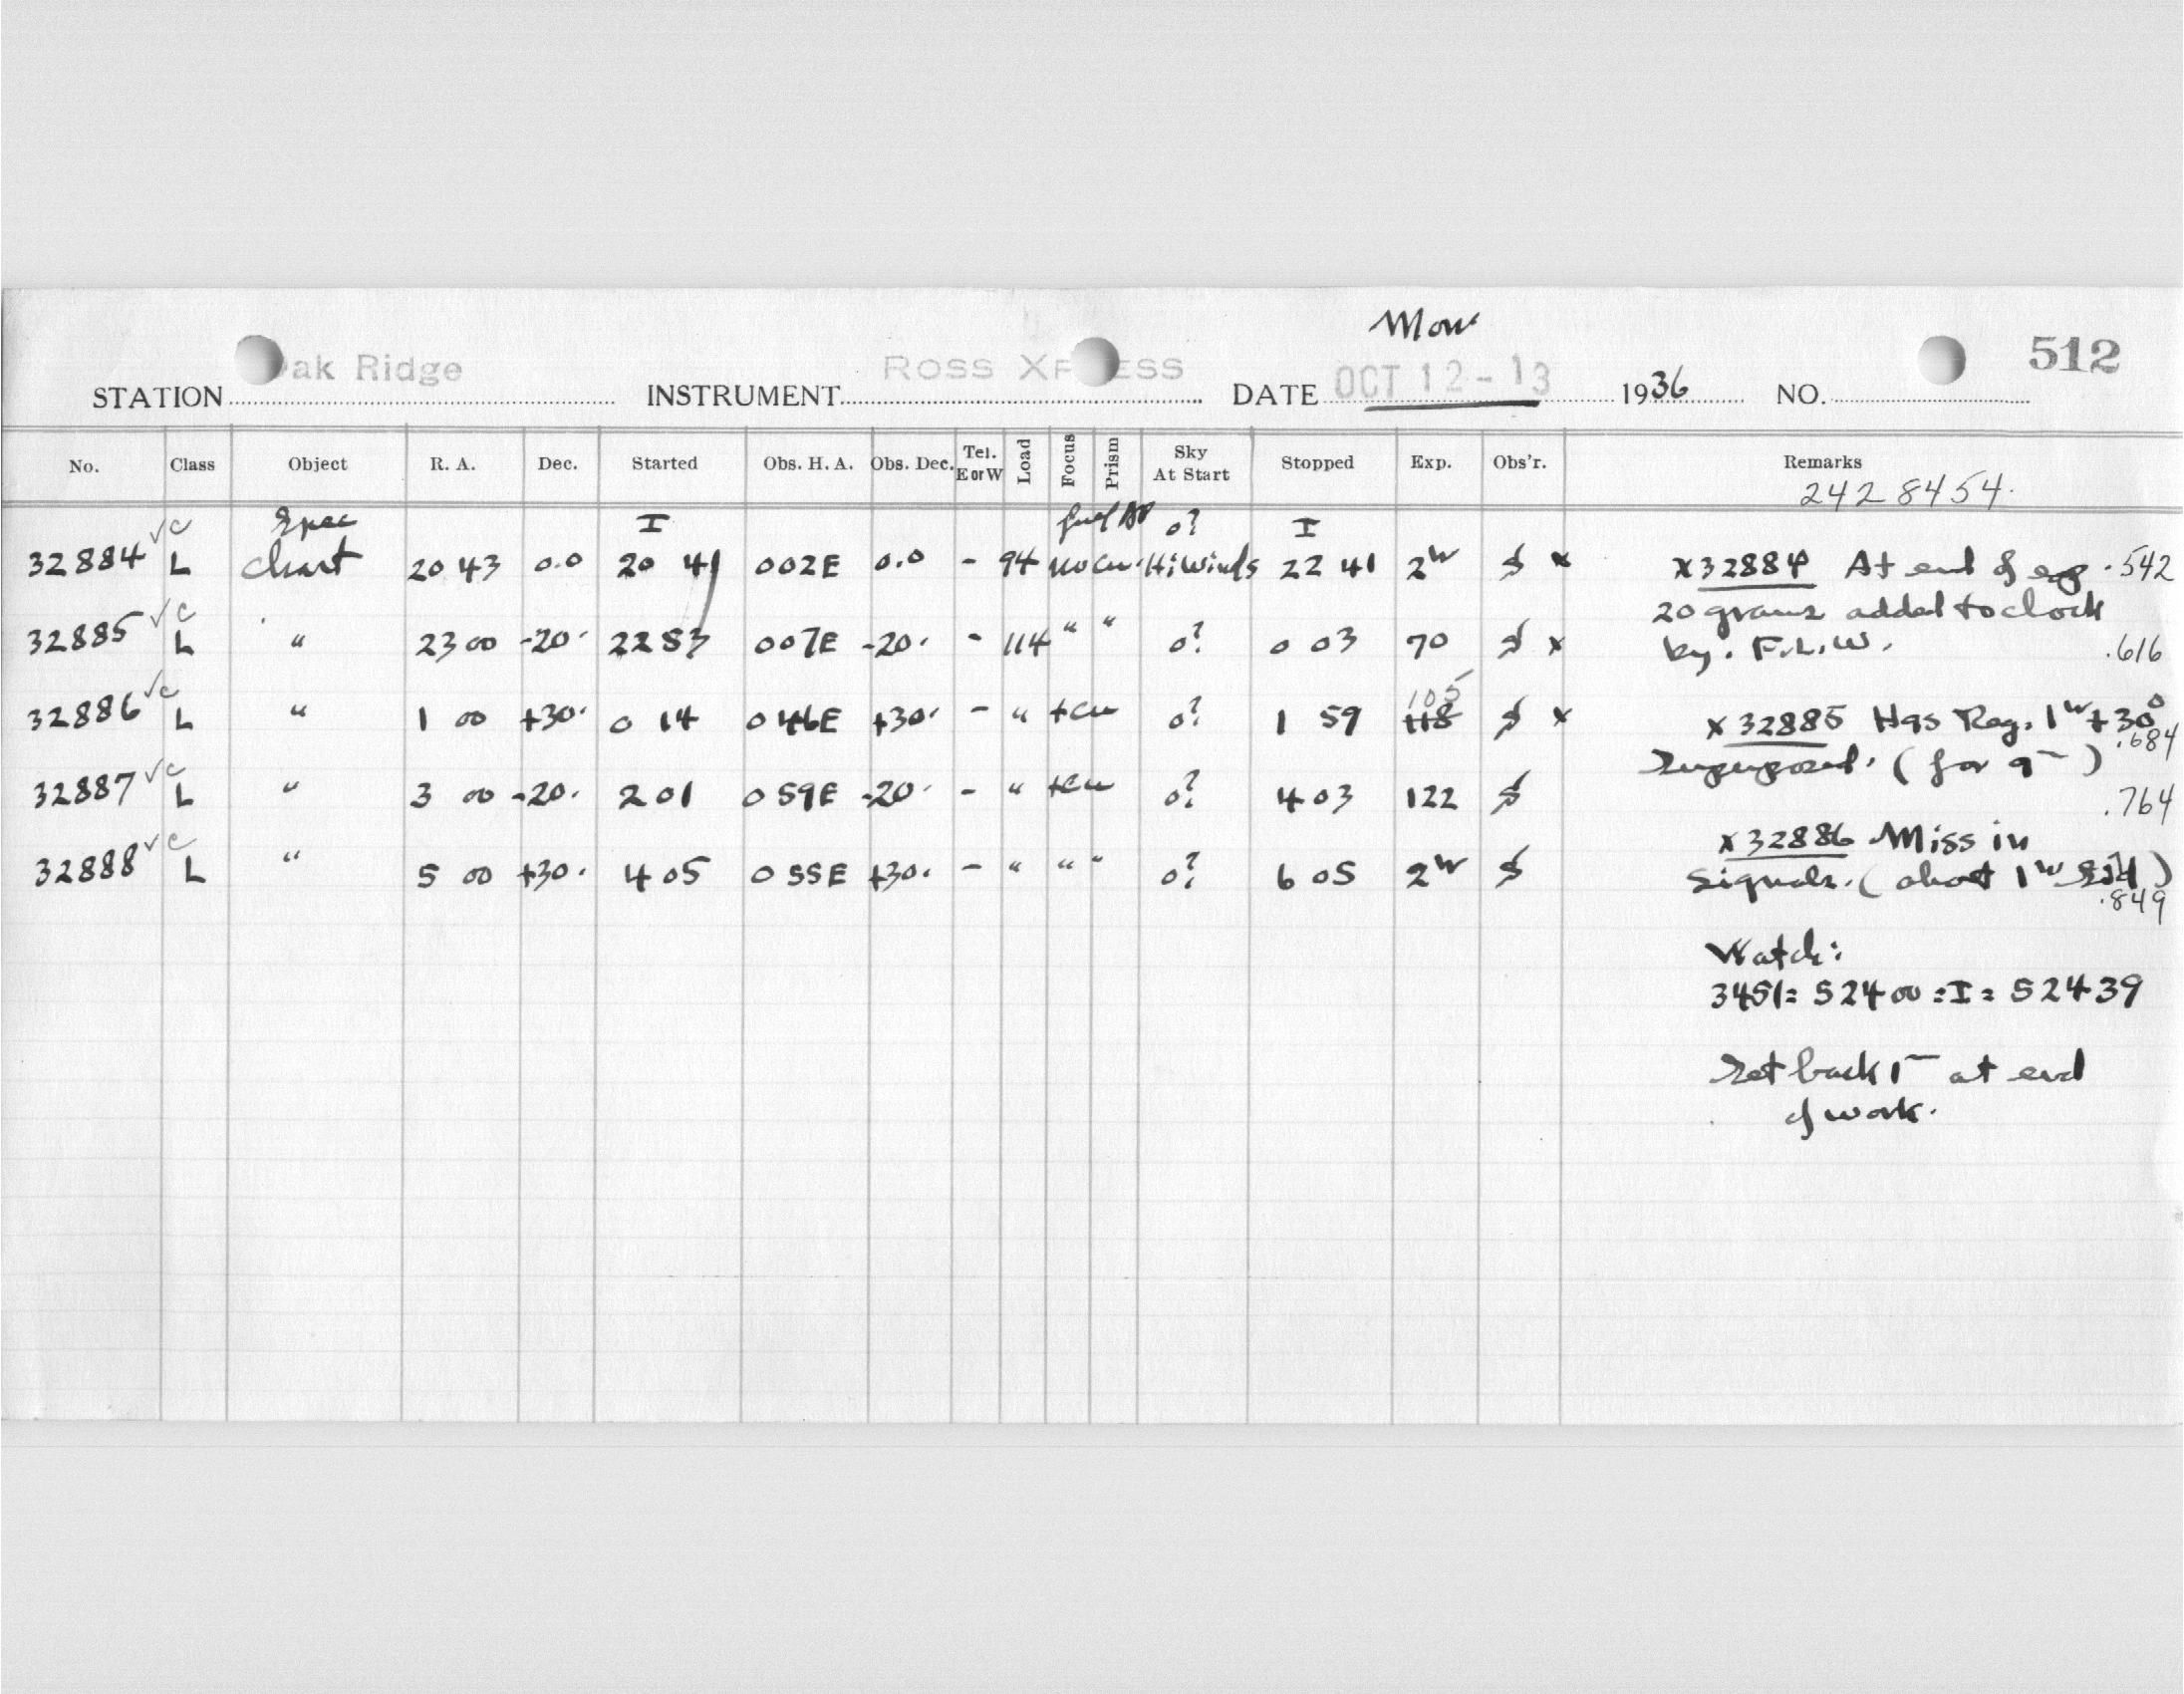 Mon
STATION ak Ridge INSTRUMENT ROSS XP ESS DATE OCT 12-13 1936 NO. 512
No. Class Object R. A. Dec. Started Obs. H. A. Obs. Dec. Tel. E or W Load Focus Prism Sky At Start Stopped Exp. Obs'r. Remarks
2428454.
√c Spec I o? I
32884 L Chart 20 43 0.0 20 41 002E 0.0 - 94 Hi Winds 22 41 2 x
x32884 At end of exp .542
20 grams added to clock
by. F.L.W. .616
32885 √c L " 23 00 -20. 22 53 007E -20. - 114 " " o? 0 03 70 x
32886 √c L " 1 00 +30. 0 14 046E +30. - " o? 1 59 118 105 x
x32885 Has Reg. 1 +30°
.684
Superposed. (for 9 )
32887 √c L " 3 00 -20. 2 01 059E -20. - " o? 4 03 122
.764
32888 √c L " 5 00 +30. 4 05 055E +30. - " " " o? 6 05 2
x32886 Miss in
Signals. (about 1 )
.849
Watch:
3451= 52400 =I= 52439
Set back 1 at end
of work.